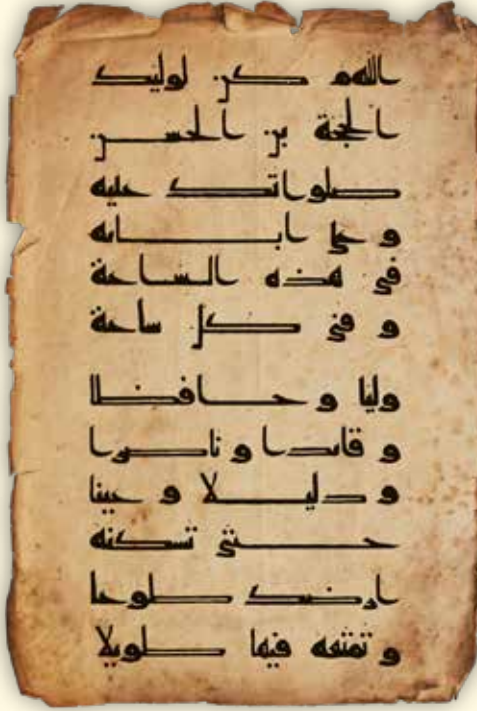 اللهم كن لوليك
الحجة بن الحسن
صلواتك عليه
و على ابائه
في هذه الساعة
و في كل ساعة
وليا و حافظا
و قائدا و ناصرا
و دليلا و عينا
حتى تسكنه
ارضك طوعا
و تمتعه فيها طويلا